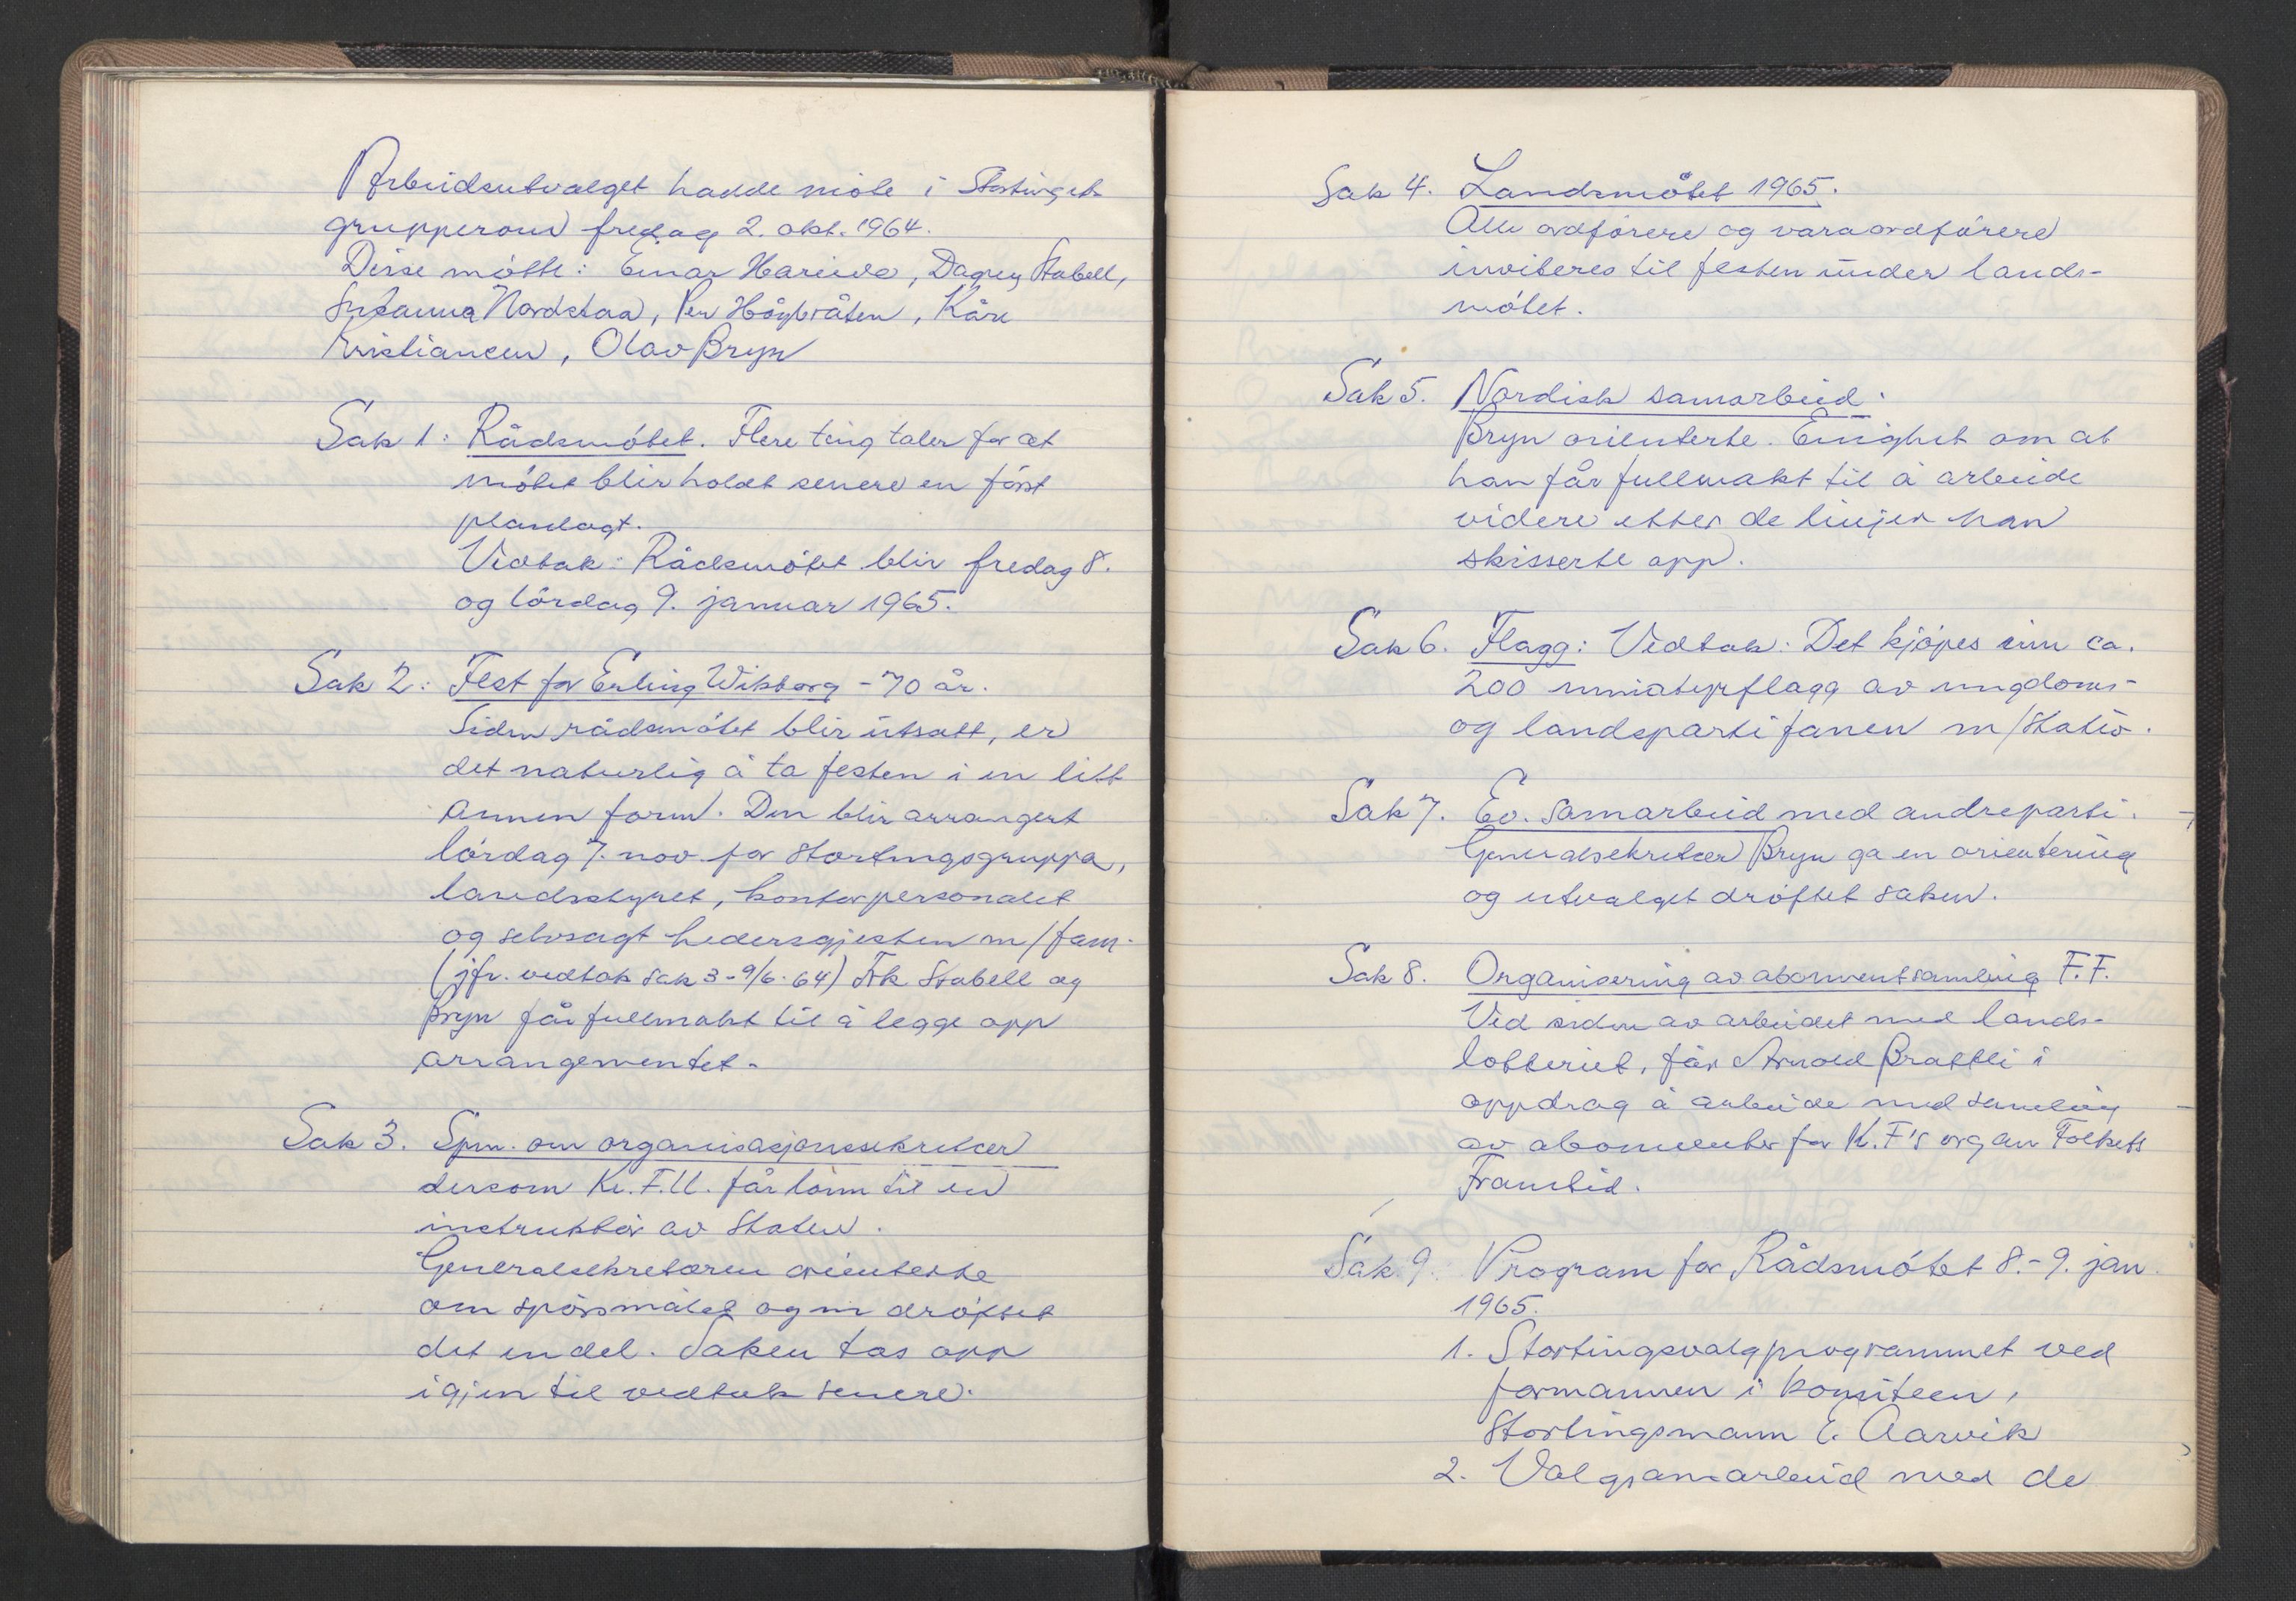 Arbeidsutvalget hadde möte i Stortingets
grupperom fredag 2. okt. 1964.
Disse mötte: Einar Hareide, Dagny Stabell,
Susanna Nordstaa, Per Höybråten, Kåre
Kristiansen, Olav Bryn
Sak 1: Rådsmötet. Flere ting taler for at
mötet blir holdt senere en först
planlagt.
Vedtak: Rådsmötet blir fredag 8.
og lördag 9. januar 1965.
Sak 2: Fest for Erling Wikborg - 70 år.
Siden rådsmötet blir utsatt, er
det naturlig å ta festen i en litt
annen form. Den blir arrangert
lördag 7. nov. for Stortingsgruppa,
landsstyret, kontorpersonalet
og selvsagt hedersgjesten m/fam.
(jfr. vedtak sak 3 - 9/6-64) Frk Stabell og
Bryn får fullmakt til å legge opp
arrangementet.
Sak 3. Spm. om organisasjonssekretær
dersom Kr.F.U. får lönn til en
instruktör av Staten.
Generalsekretæren orienterte
om spörsmålet og vi dröftet
det en del. Saken tas opp
igjen til vedtak senere.
Sak 4. Landsmötet 1965.
Alle ordförere og varaordförere
inviteres til festen under lands-
mötet.
Sak 5. Nordisk samarbeid.
Bryn orienterte. Enighet om at
han får fullmakt til å arbeide
videre etter de linjer han
skisserte opp.
Sak 6. Flagg: Vedtak: Det kjöpes inn ca.
200 miniatyrflagg av ungdoms-
og landspartifanen m/stativ.
Sak 7. Ev. samarbeid med andre parti.
Generalsekretær Bryn ga en orientering
og utvalget dröftet saken.
Sak 8. Organisering av abonnentsamling F.F.
Ved siden av arbeidet med lands-
lotteriet, får Arnold Brattli i
oppdrag å arbeide med samling
av abonnenter for Kr.F's organ Folkets
Framtid.
Sak 9. Program for Rådsmötet 8.-9. jan.
1965.
1. Stortingsvalgprogrammet ved
formannen i komiteen,
Stortingsmann E. Aarvik
2. Valgsamarbeid med de